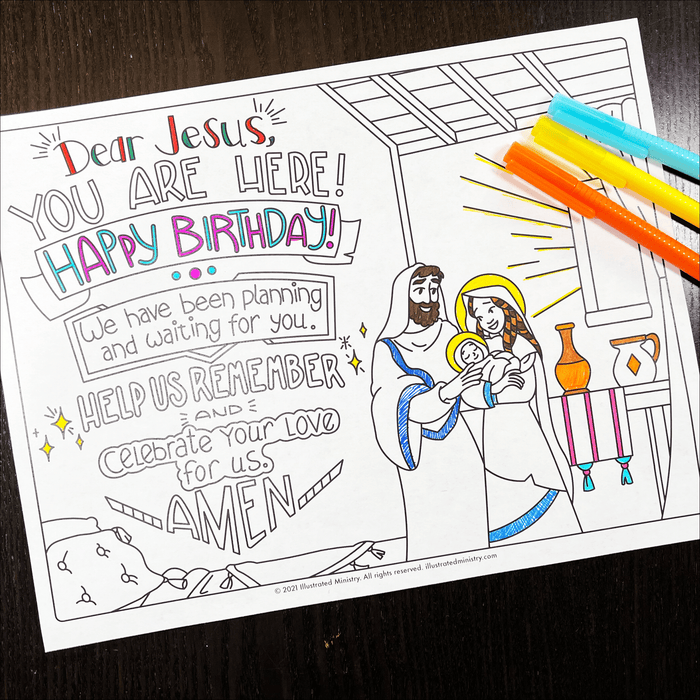 Dear Jesus,
YOU ARE HERE!
HAPPY BIRTHDAY!
We have been planning
and waiting for you.
HELP US REMEMBER
AND
Celebrate Your Love
for us.
AMEN
© 2021 Illustrated Ministry. All rights reserved. illustratedministry.com